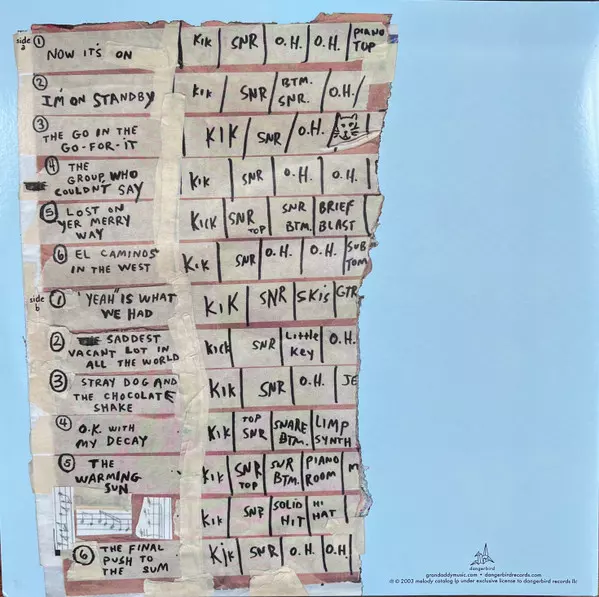 side a
① NOW IT'S ON KIK SNR O.H. O.H. PIANO TOP
② I'M ON STANDBY KIK SNR BTM. SNR. O.H.
③ THE GO IN THE GO-FOR-IT KIK SNR O.H.
④ THE GROUP WHO COULDNT SAY KIK SNR O.H. O.H.
⑤ LOST ON YER MERRY WAY KICK SNR TOP SNR BTM. BRIEF BLAST
⑥ EL CAMINOS IN THE WEST KIK SNR O.H. O.H. SUB TOM
side b
① "YEAH" IS WHAT WE HAD KIK SNR SKIS GTR
② SADDEST VACANT LOT IN ALL THE WORLD KICK SNR LITTLE KEY O.H.
③ STRAY DOG AND THE CHOCOLATE SHAKE KIK SNR O.H. JE
④ O.K. WITH MY DECAY KIK TOP SNR SNARE BTM. LIMP SYNTH
⑤ THE WARMING SUN KIK SNR TOP SNR BTM. PIANO ROOM M
KIK SNR SOLID HIT HI HAT
⑥ THE FINAL PUSH TO THE SUM KIK SNR O.H. O.H.
dangerbird
grandaddymusic.com • dangerbirdrecords.com
℗ © 2003 melody catalog lp under exclusive license to dangerbird records llc